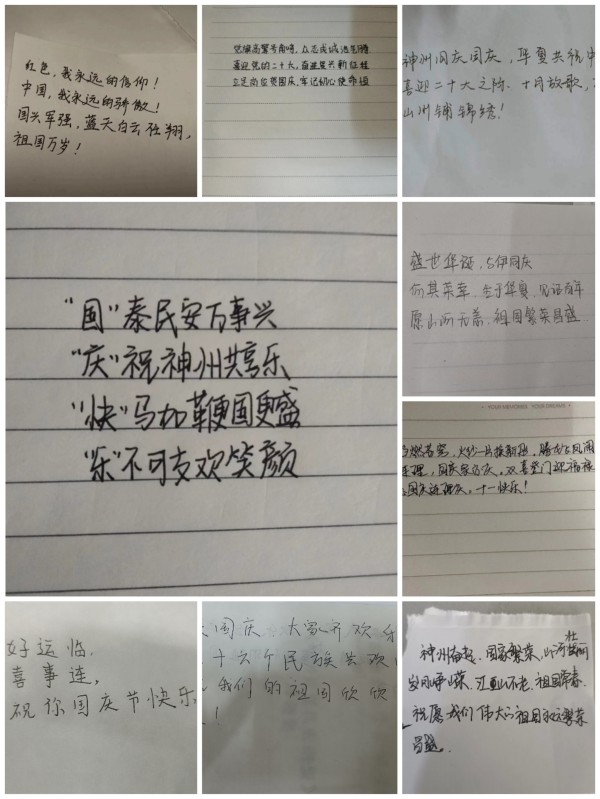 红色，我永远的信仰！
中国，我永远的骄傲！
国兴军强，蓝天白云任翔，
祖国万岁！
党旗高擎号角响，众志成城
喜迎党的二十大，奋进复兴新征程
立足岗位贺国庆，牢记初心使命
神州同庆国庆，华夏共祝中
喜迎二十大之际，十月放歌，
山州铺锦绣！
"国"泰民安万事兴
"庆"祝神州共享乐
"快"马加鞭国更盛
"乐"不可支欢笑颜
盛世华诞，与伊同庆
何其荣幸，生于华夏，见证百年
愿山河无恙，祖国繁荣昌盛
YOUR MEMORIES YOUR DREAMS
国庆家亦庆，双喜登门迎福禄
十一快乐！
好运临，
喜事连，
祝你国庆节快乐
国庆，大家齐欢乐
十六个民族共欢
我们的祖国欣欣
！
神州奋起，国家繁荣，山河壮丽
岁月峥嵘，江山不老，祖国常春
祝愿我们伟大的祖国永远繁荣
昌盛.